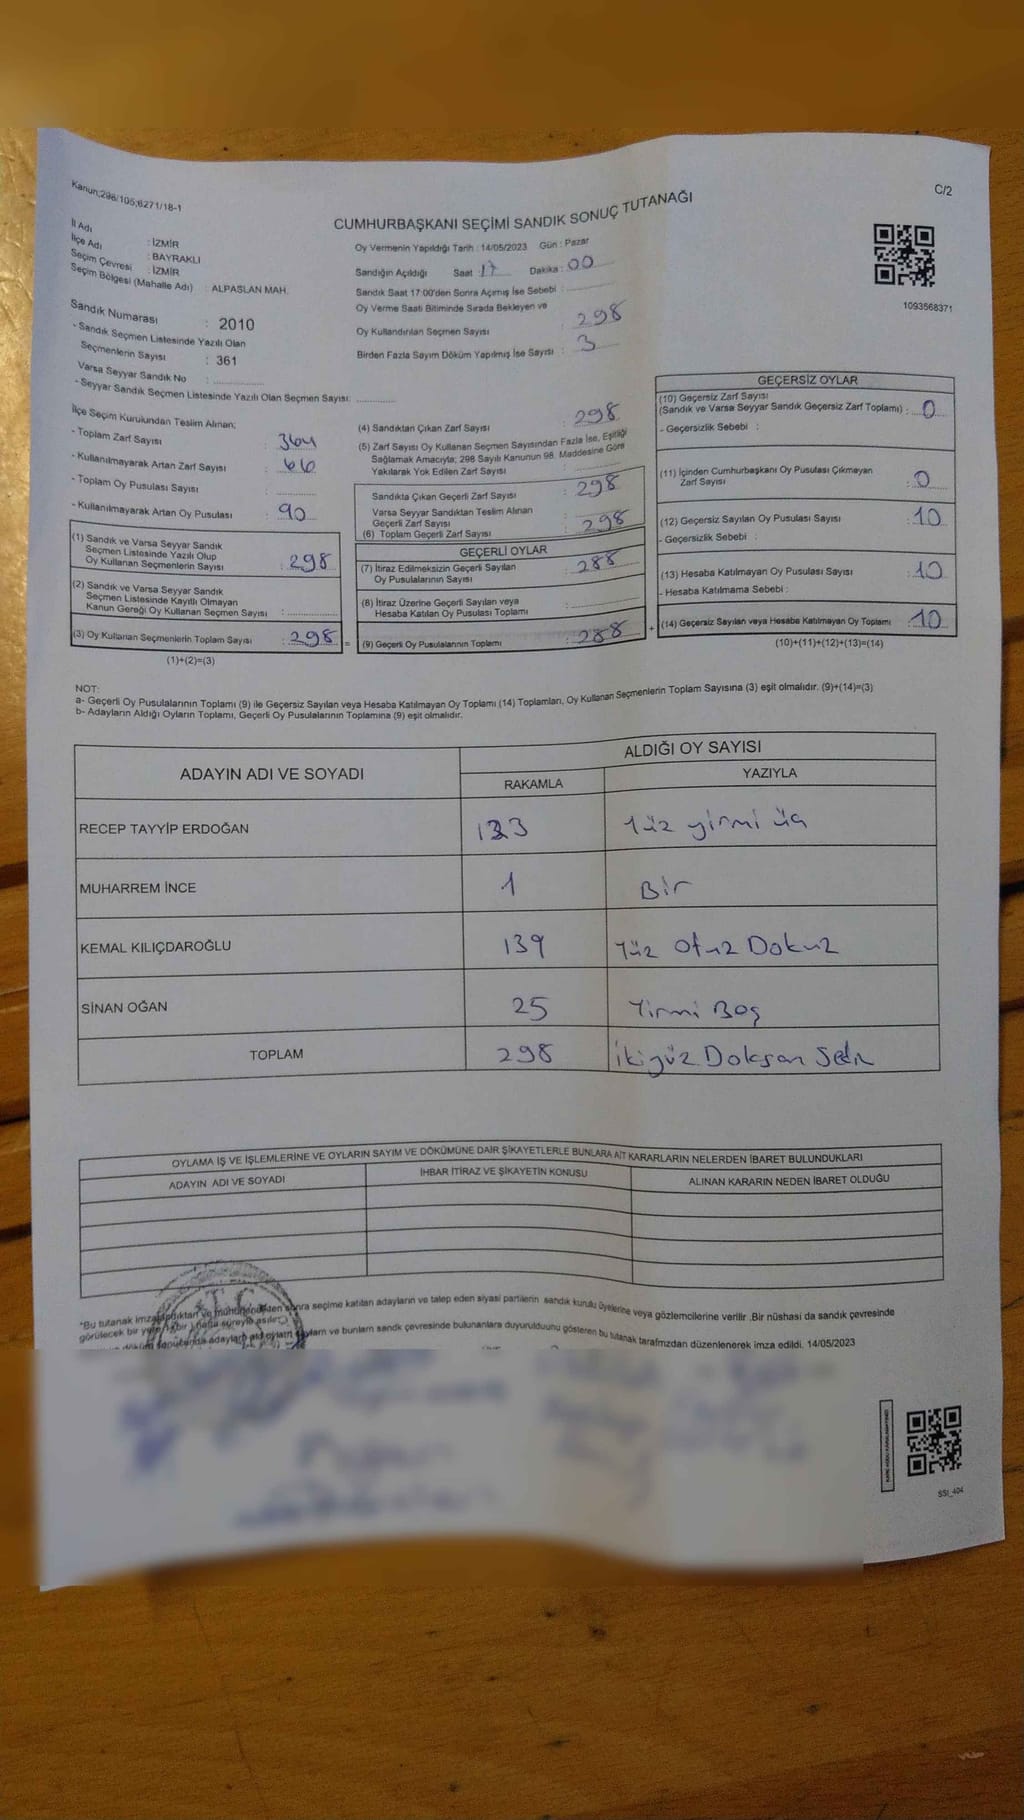 Kanun;298/105;6271/18-1
C/2
CUMHURBAŞKANI SEÇİMİ SANDIK SONUÇ TUTANAĞI
İl Adı : İZMİR
İlçe Adı : BAYRAKLI
Seçim Çevresi : İZMİR
Seçim Bölgesi (Mahalle Adı) : ALPASLAN MAH.
Sandık Numarası : 2010
- Sandık Seçmen Listesinde Yazılı Olan
Seçmenlerin Sayısı : 361
Varsa Seyyar Sandık No :
- Seyyar Sandık Seçmen Listesinde Yazılı Olan Seçmen Sayısı:
Oy Vermenin Yapıldığı Tarih : 14/05/2023 Gün : Pazar
Sandığın Açıldığı Saat : 17 Dakika : 00
Sandık Saat 17:00'den Sonra Açımış İse Sebebi :
Oy Verme Saati Bitiminde Sırada Bekleyen ve
Oy Kullandırılan Seçmen Sayısı : 298
Birden Fazla Sayım Döküm Yapılmış İse Sayısı : 3
1093568371
İlçe Seçim Kurulundan Teslim Alınan;
- Toplam Zarf Sayısı : 364
- Kullanılmayarak Artan Zarf Sayısı : 66
- Toplam Oy Pusulası Sayısı :
- Kullanılmayarak Artan Oy Pusulası : 90
(1) Sandık ve Varsa Seyyar Sandık
Seçmen Listesinde Yazılı Olup
Oy Kullanan Seçmenlerin Sayısı : 298
(2) Sandık ve Varsa Seyyar Sandık
Seçmen Listesinde Kayıtlı Olmayan
Kanun Gereği Oy Kullanan Seçmen Sayısı :
(3) Oy Kullanan Seçmenlerin Toplam Sayısı : 298 =
(1)+(2)=(3)
(4) Sandıktan Çıkan Zarf Sayısı : 298
(5) Zarf Sayısı Oy Kullanan Seçmen Sayısından Fazla İse, Eşitliği
Sağlamak Amacıyla; 298 Sayılı Kanunun 98. Maddesine Göre
Yakılarak Yok Edilen Zarf Sayısı :
Sandıkta Çıkan Geçerli Zarf Sayısı : 298
Varsa Seyyar Sandıktan Teslim Alınan
Geçerli Zarf Sayısı :
(6) Toplam Geçerli Zarf Sayısı : 298
GEÇERLİ OYLAR
(7) İtiraz Edilmeksizin Geçerli Sayılan
Oy Pusulalarının Sayısı : 288
(8) İtiraz Üzerine Geçerli Sayılan veya
Hesaba Katılan Oy Pusulası Toplamı :
(9) Geçerli Oy Pusulalarının Toplamı : 288 +
GEÇERSİZ OYLAR
(10) Geçersiz Zarf Sayısı
(Sandık ve Varsa Seyyar Sandık Geçersiz Zarf Toplamı) : 0
- Geçersizlik Sebebi :
(11) İçinden Cumhurbaşkanı Oy Pusulası Çıkmayan
Zarf Sayısı : 0
(12) Geçersiz Sayılan Oy Pusulası Sayısı : 10
- Geçersizlik Sebebi :
(13) Hesaba Katılmayan Oy Pusulası Sayısı : 10
- Hesaba Katılmama Sebebi :
(14) Geçersiz Sayılan veya Hesaba Katılmayan Oy Toplamı : 10
(10)+(11)+(12)+(13)=(14)
NOT:
a- Geçerli Oy Pusulalarının Toplamı (9) ile Geçersiz Sayılan veya Hesaba Katılmayan Oy Toplamı (14) Toplamları, Oy Kullanan Seçmenlerin Toplam Sayısına (3) eşit olmalıdır. (9)+(14)=(3)
b- Adayların Aldığı Oyların Toplamı, Geçerli Oy Pusulalarının Toplamına (9) eşit olmalıdır.
ADAYIN ADI VE SOYADI ALDIĞI OY SAYISI
RAKAMLA YAZIYLA
RECEP TAYYİP ERDOĞAN 123 Yüz yirmi üç
MUHARREM İNCE 1 Bir
KEMAL KILIÇDAROĞLU 139 Yüz Otuz Dokuz
SİNAN OĞAN 25 Yirmi Beş
TOPLAM 298 İkiyüz Doksan
OYLAMA İŞ VE İŞLEMLERİNE VE OYLARIN SAYIM VE DÖKÜMÜNE DAİR ŞİKAYETLERLE BUNLARA AİT KARARLARIN NELERDEN İBARET BULUNDUKLARI
ADAYIN ADI VE SOYADI İHBAR İTİRAZ VE ŞİKAYETİN KONUSU ALINAN KARARIN NEDEN İBARET OLDUĞU
*Bu tutanak imzalandıktan ve mühürlendikten sonra seçime katılan adayların ve talep eden siyasi partilerin sandık kurulu üyelerine veya gözlemcilerine verilir .Bir nüshası da sandık çevresinde
görülecek bir yere (bir) hafta süreyle asılır.
ve bunların sandık çevresinde bulunanlara duyurulduunu gösteren bu tutanak tarafımzdan düzenlenerek imza edildi. 14/05/2023
SSI_404